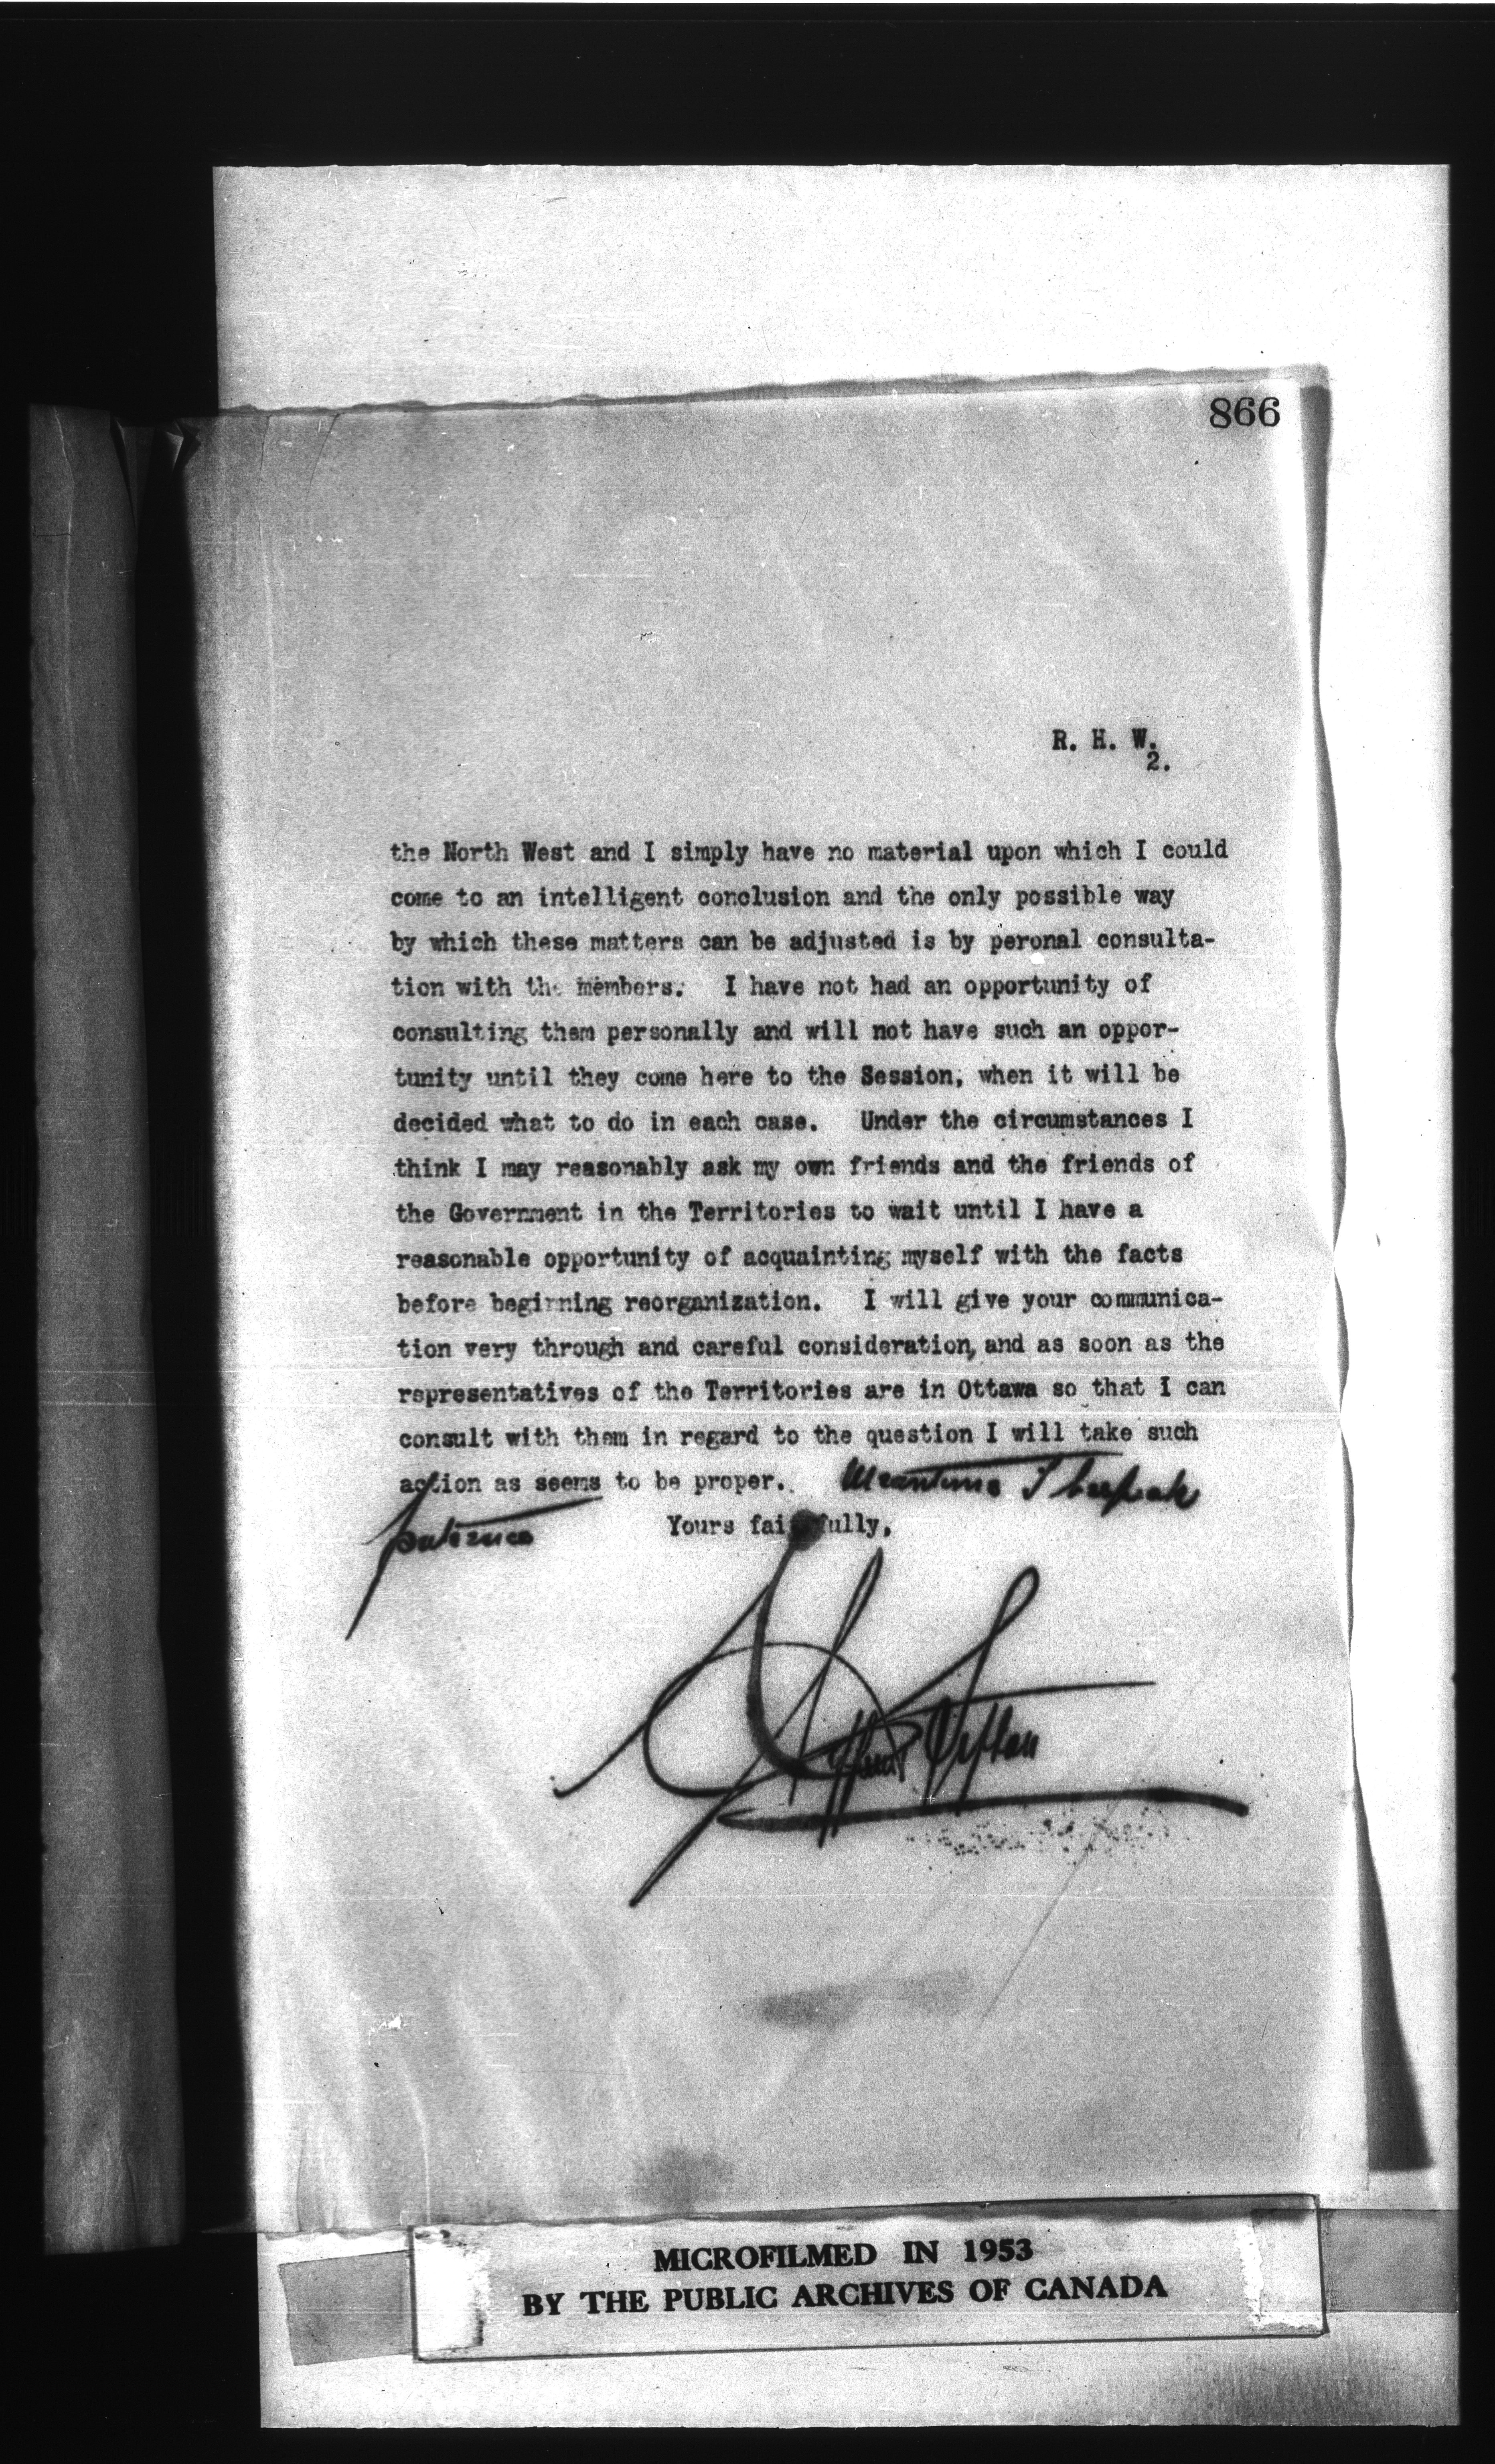 866
R. H. W.
2.
the North West and I simply have no material upon which I could
come to an intelligent conclusion and the only possible way
by which these matters can be adjusted is by peronal consulta-
tion with the members. I have not had an opportunity of
consulting them personally and will not have such an oppor-
tunity until they come here to the Session, when it will be
decided what to do in each case. Under the circumstances I
think I may reasonably ask my own friends and the friends of
the Government in the Territories to wait until I have a
reasonable opportunity of acquainting myself with the facts
before beginning reorganization. I will give your communica-
tion very through and careful consideration, and as soon as the
representatives of the Territories are in Ottawa so that I can
consult with them in regard to the question I will take such
action as seems to be proper. Meantime I bespeak
patience
Yours faithfully,
Clifford Sifton
MICROFILMED IN 1953
BY THE PUBLIC ARCHIVES OF CANADA